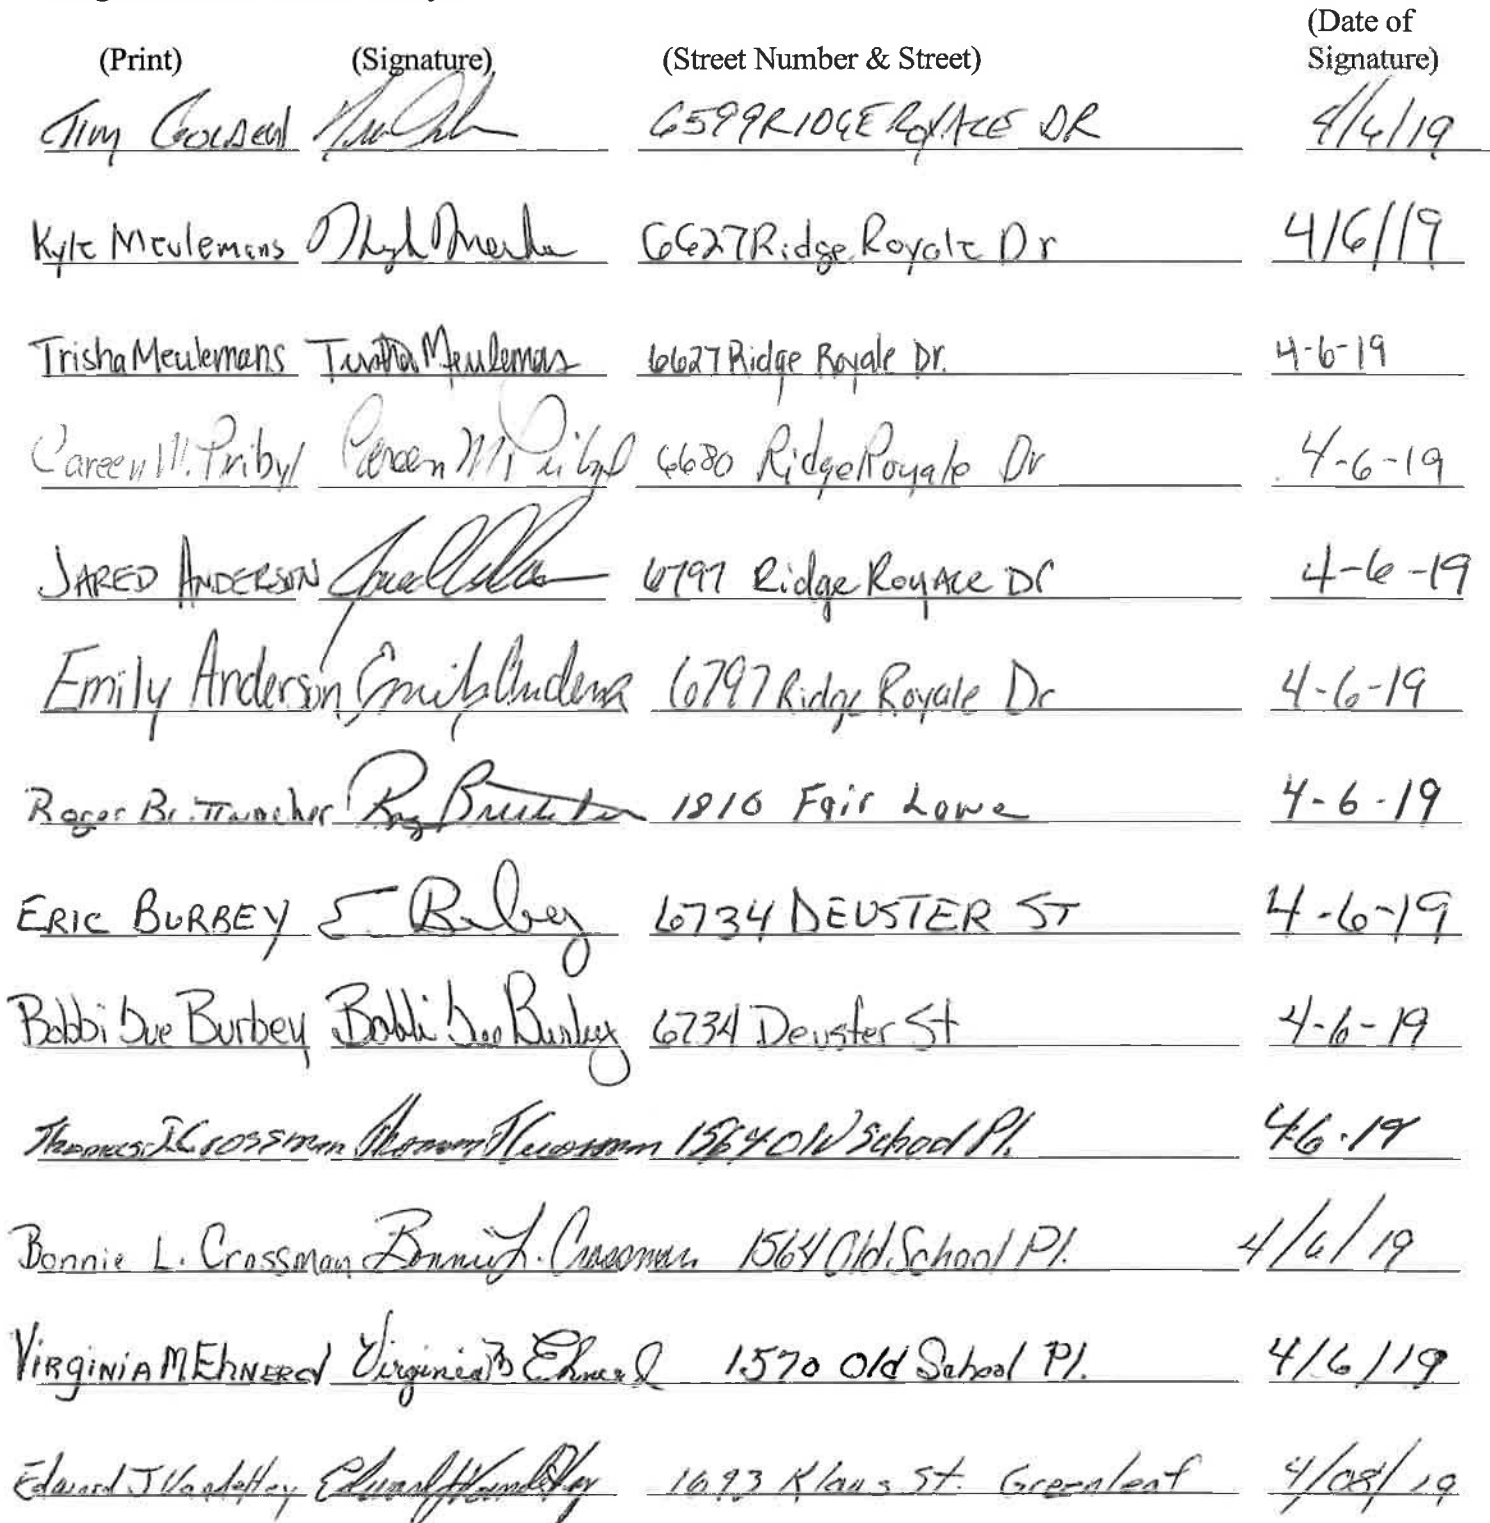 (Date of
(Print) (Signature) (Street Number & Street) Signature)
Tim Golden 6599 RIDGE ROYALE DR 4/6/19
Kyle Meulemans 6627 Ridge Royale Dr 4/6/19
Trisha Meulemans Trisha Meulemans 6627 Ridge Royale Dr. 4-6-19
Careen M. Pribyl Careen M Pribyl 6680 Ridge Royale Dr 4-6-19
JARED ANDERSON 6797 Ridge Royale Dr 4-6-19
Emily Anderson Emily Anderson 6797 Ridge Royale Dr 4-6-19
Roger Brittnacher 1810 Fair Lane 4-6-19
ERIC BURBEY E Burbey 6734 DEUSTER ST 4-6-19
Bobbi Sue Burbey Bobbi Sue Burbey 6734 Deuster St 4-6-19
Thomas J Crossman Thomas J Crossman 1564 Old School Pl. 4-6-19
Bonnie L. Crossman Bonnie L. Crossman 1564 Old School Pl. 4/6/19
VIRGINIA M Ehnerd Virginia M Ehnerd 1570 Old School Pl. 4/6/19
Edward J 1693 Klaus St. Greenleaf 4/08/19